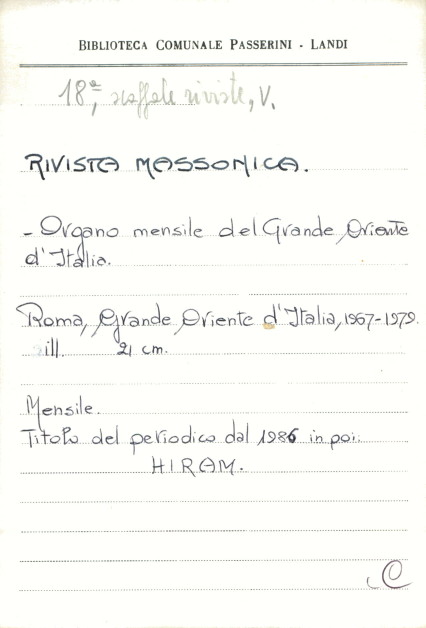 BIBLIOTECA COMUNALE PASSERINI - LANDI
18ª, scaffale riviste, V.
RIVISTA MASSONICA.
- Organo mensile del Grande Oriente
d'Italia.
Roma, Grande Oriente d'Italia, 1967-1979.
ill. 21 cm.
Mensile.
Titolo del periodico dal 1986 in poi:
HIRAM.
C